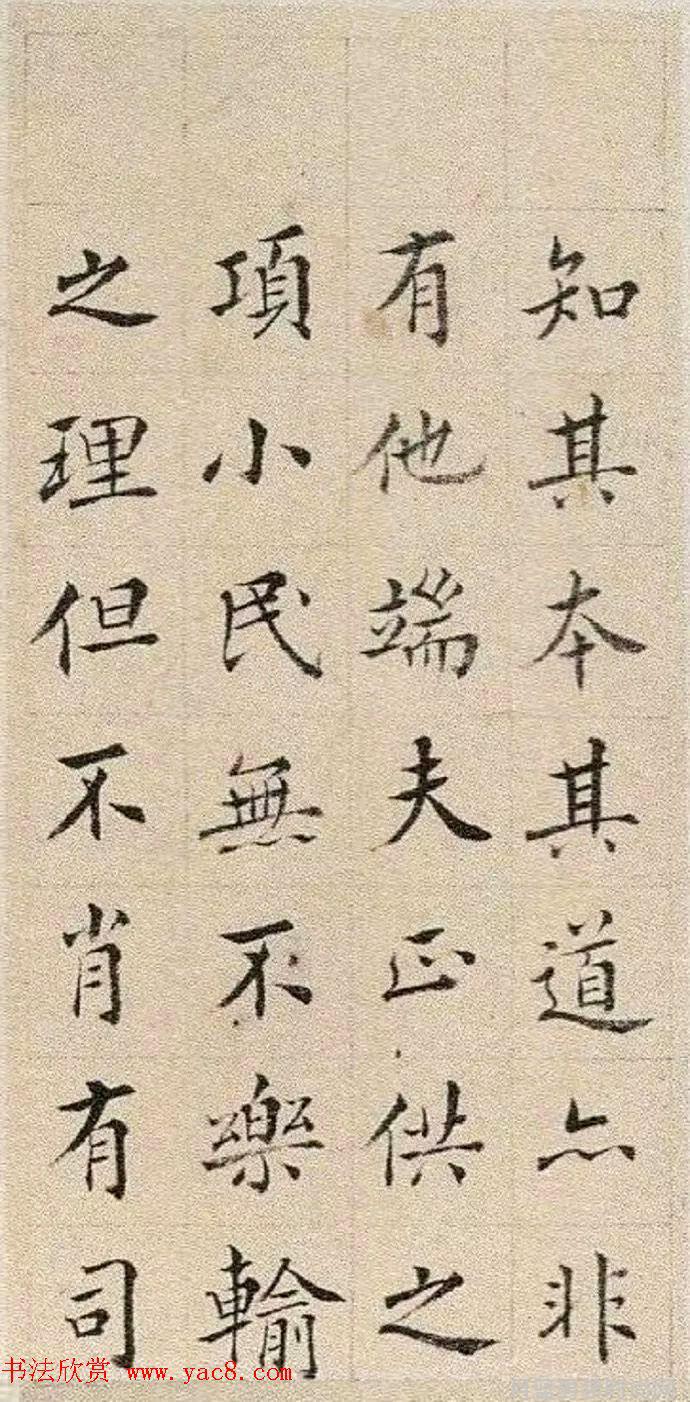 知其本其道亦非
有他端夫正供之
項小民無不樂輸
之理但不肖有司
书法欣赏 www.yac8.com